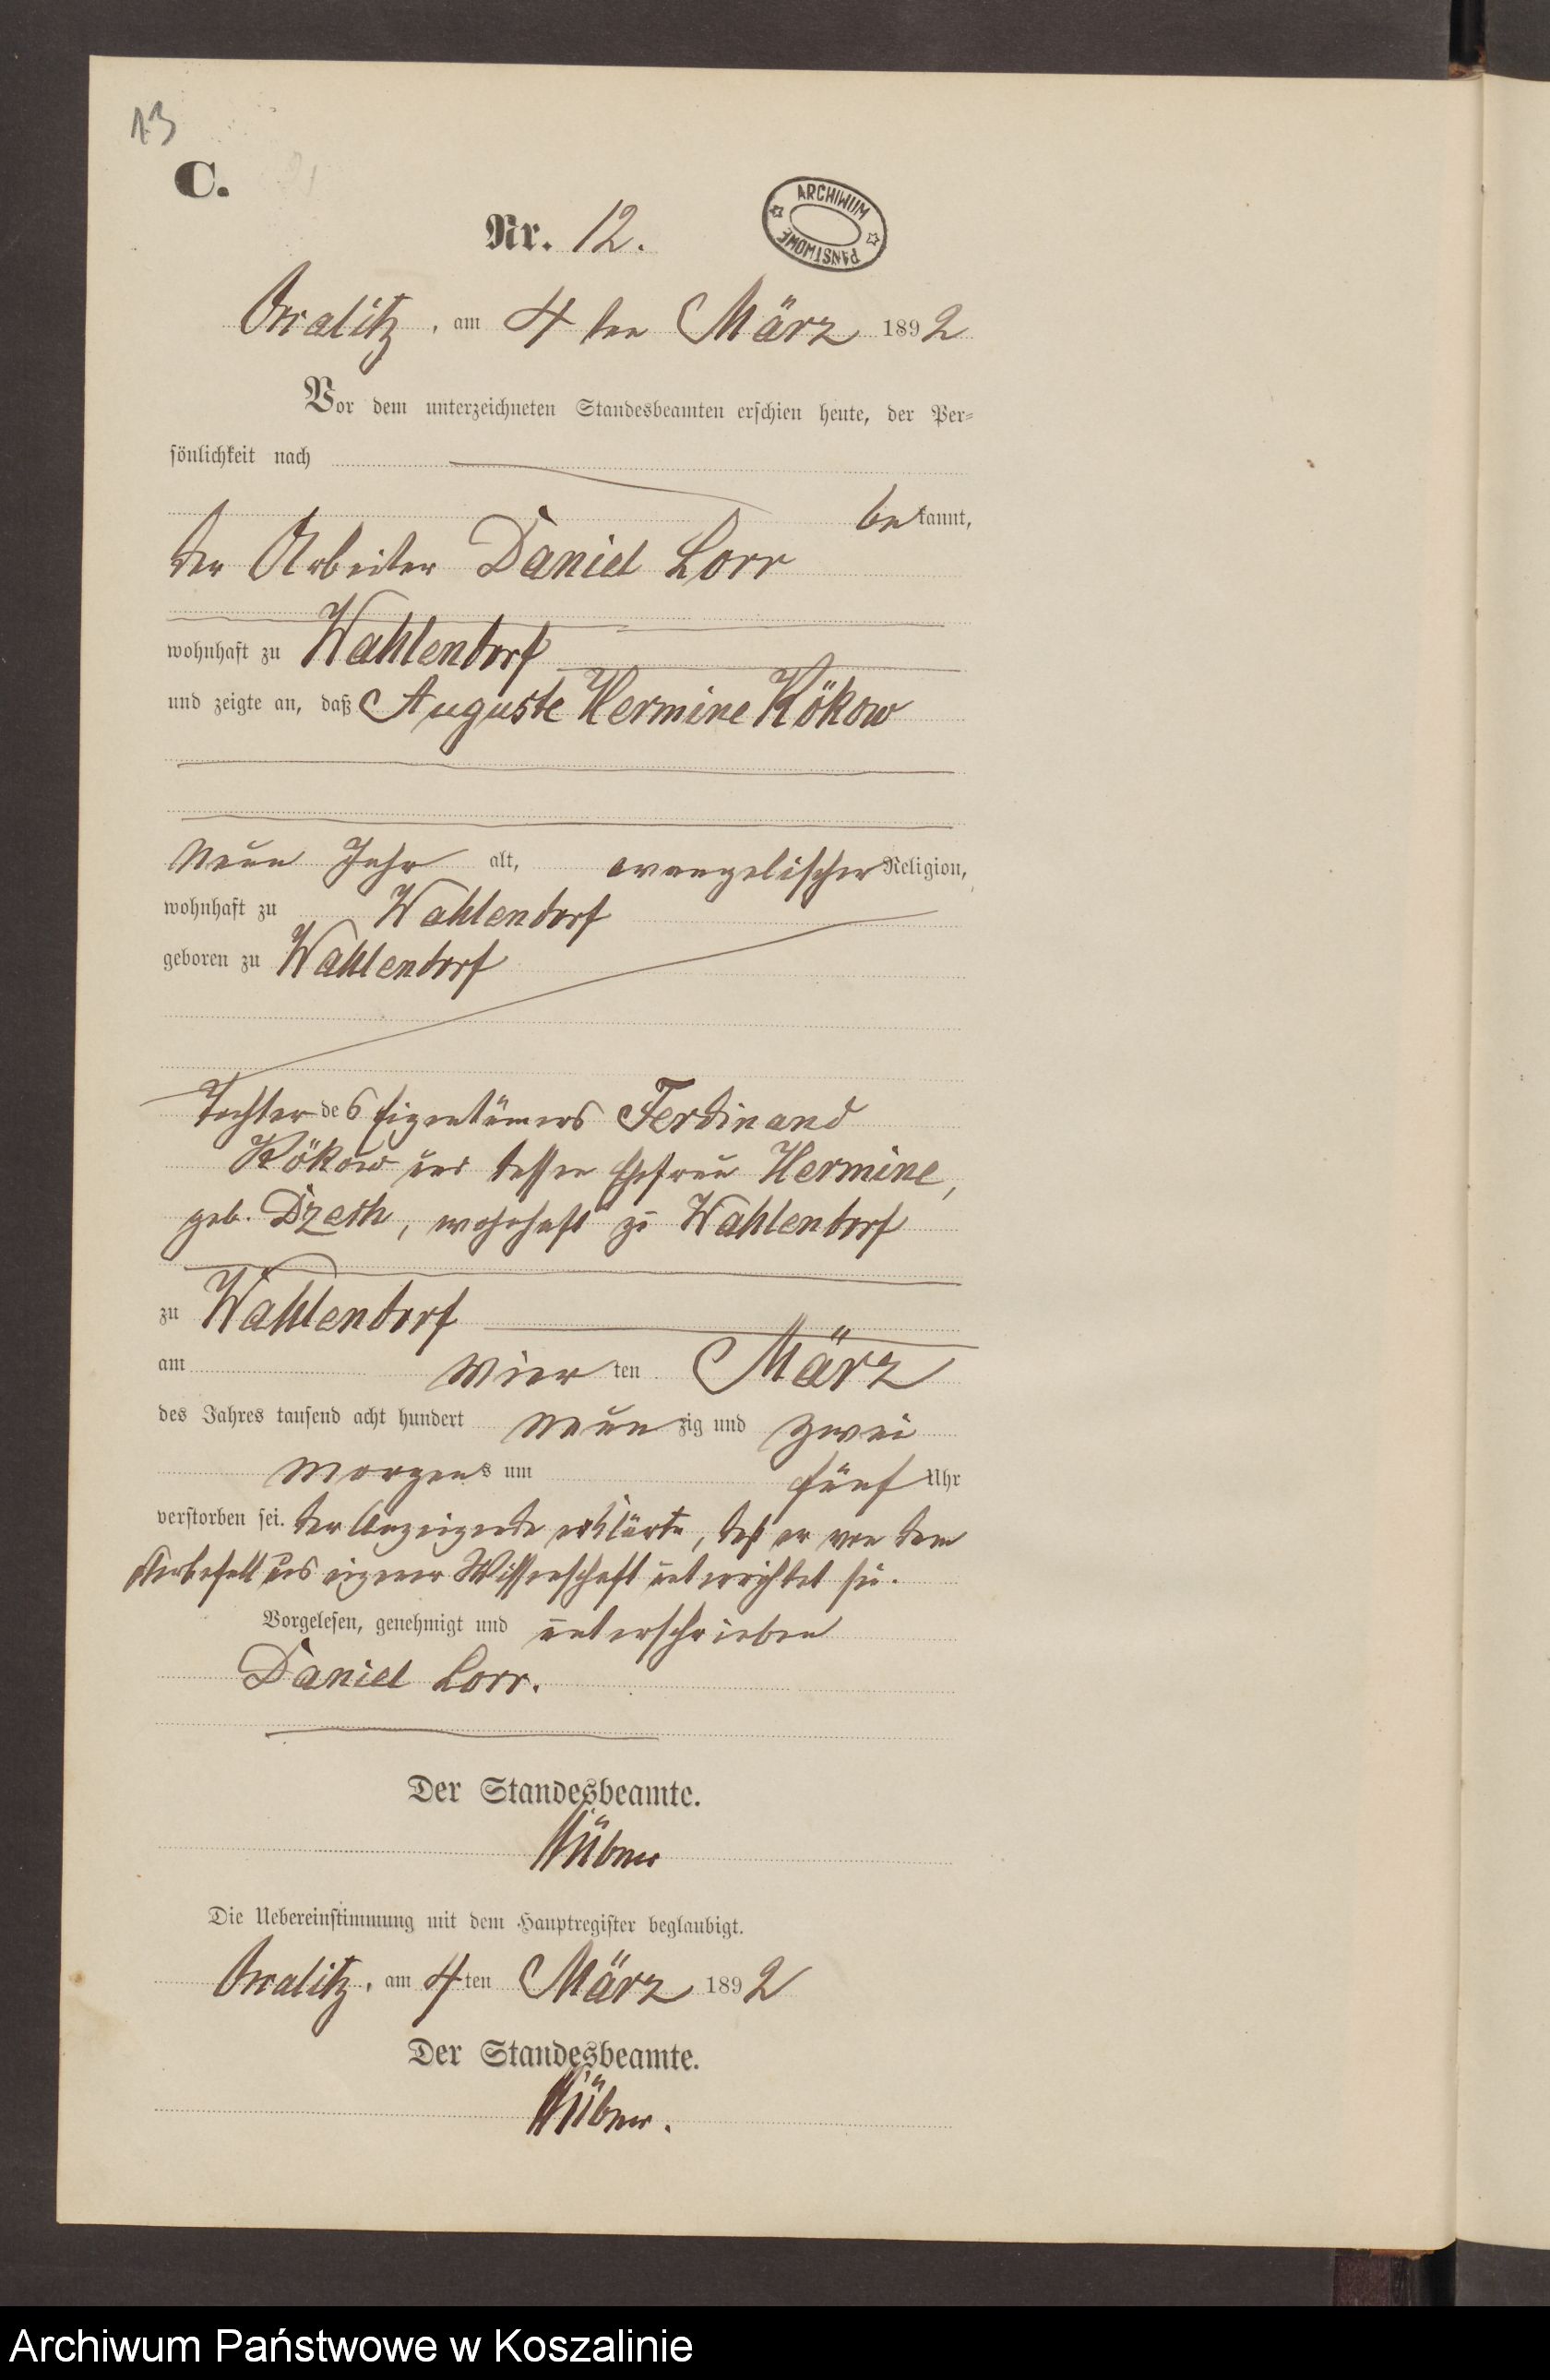 13
C.
Nr. 12.
ARCHIWUM
PAŃSTWOWE
Wralitz, am 4ten März 1892
Vor dem unterzeichneten Standesbeamten erschien heute, der Per-
sönlichkeit nach
bekannt,
der Arbeiter Daniel Lorr
wohnhaft zu Wahlendorf
und zeigte an, daß Auguste Hermine Kökow
neun Jahr alt, evangelischer Religion,
wohnhaft zu Wahlendorf
geboren zu Wahlendorf
Tochter des Eigentümers Ferdinand
Kökow und dessen Ehefrau Hermine,
geb. Dzeth, wohnhaft zu Wahlendorf
zu Wahlendorf
am vierten März
des Jahres tausend acht hundert neunzig und zwei
Morgens um fünf Uhr
verstorben sei. Der Anzeigende erklärte, daß er von dem
Sterbefall aus eigener Wissenschaft unterrichtet sei.
Vorgelesen, genehmigt und unterschrieben
Daniel Lorr.
Der Standesbeamte.
Hübner
Die Uebereinstimmung mit dem Hauptregister beglaubigt.
Wralitz, am 4ten März 1892
Der Standesbeamte.
Hübner.
Archiwum Państwowe w Koszalinie